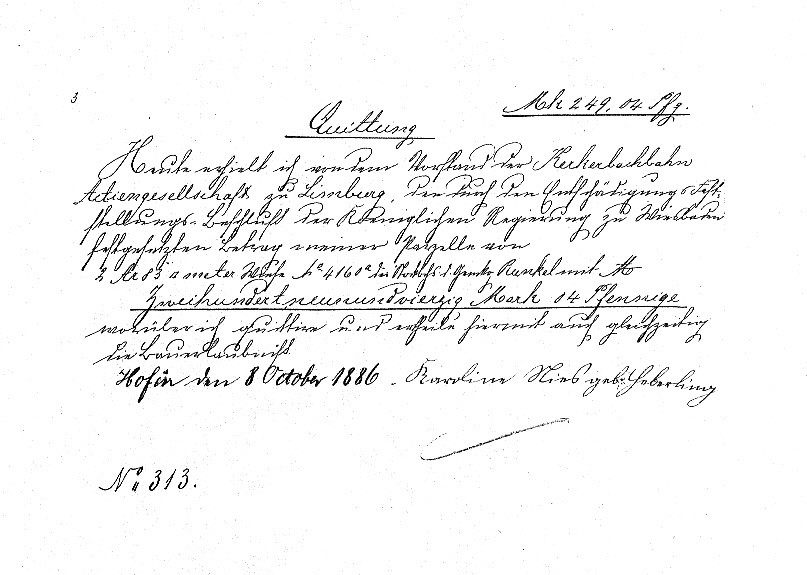 3
Mk 249.04 Pfg.
Quittung
Heute erhielt ich von dem Vorstand der Kerkerbachbahn
Actiengesellschaft zu Limburg, den durch den Entschädigungs-Fest-
stellungs-Beschluß der Koeniglichen Regierung zu Wiesbaden
festgesetzten Betrag meiner Parzelle von
2 Ar 83 □meter Wiese No 4160a des Stockbchs d. Gemkg Runkel mit M
Zweihundertneunundvierzig Mark 04 Pfennige
worüber ich quittire und ertheile hiermit auch gleichzeitig
die Bauerlaubniß.
Hofen den 8 October 1886. Karoline Nies geb: Heberling
No 313.